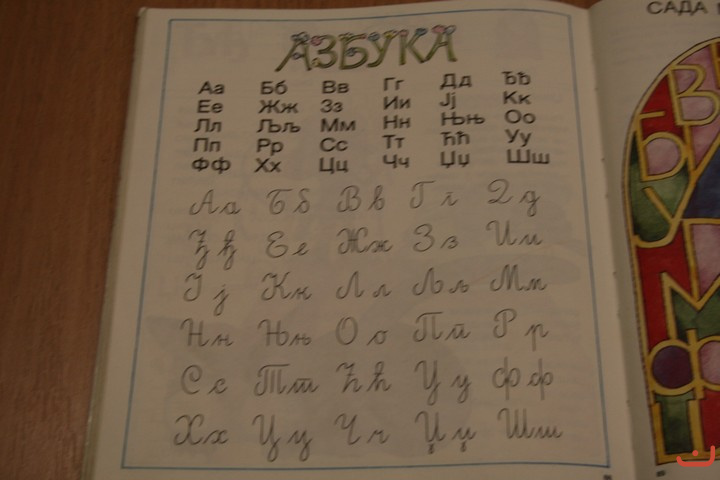 АЗБУКА
Аа Бб Вв Гг Дд Ђђ
Ее Жж Зз Ии Јј Кк
Лл Љљ Мм Нн Њњ Оо
Пп Рр Сс Тт Ћћ Уу
Фф Хх Цц Чч Џџ Шш
Аа Бб Вв Гг Дд
Ђђ Ее Жж Зз Ии
Јј Кк Лл Љљ Мм
Нн Њњ Оо Пп Рр
Сс Тт Ћћ Уу Фф
Хх Цц Чч Џџ Шш
САДА